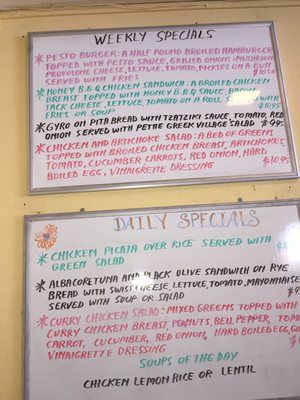 WEEKLY SPECIALS
* PESTO BURGER: A HALF POUND BROILED HAMBURGER
TOPPED WITH PESTO SAUCE, GRILLED ONIONS & MUSHROOMS
PROVOLONE CHEESE, LETTUCE, TOMATO, PICKLES ON A BUN
SERVED WITH FRIES $10.50
* HONEY B.B.Q CHICKEN SANDWICH: A BROILED CHICKEN
BREAST TOPPED WITH HONEY B.B.Q SAUCE, BACON
JACK CHEESE, LETTUCE, TOMATO ON A ROLL SERVED WITH
FRIES OR SOUP $10.95
* GYRO ON PITA BREAD WITH TZATZIKI SAUCE, TOMATO, RED
ONION SERVED WITH PETITE GREEK VILLAGE SALAD $9.95
* CHICKEN AND ARTICHOKE SALAD: A BED OF GREENS
TOPPED WITH BROILED CHICKEN BREAST, ARTICHOKES
TOMATO, CUCUMBER, CARROTS, RED ONION, HARD
BOILED EGG, VINAIGRETTE DRESSING $10.95
DAILY SPECIALS
* CHICKEN PICATA OVER RICE SERVED WITH
GREEN SALAD
* ALBACORE TUNA AND BLACK OLIVE SANDWICH ON RYE
BREAD WITH SWISS CHEESE, LETTUCE, TOMATO, MAYONNAISE
SERVED WITH SOUP OR SALAD
* CURRY CHICKEN SALAD: MIXED GREENS TOPPED WITH
CURRY CHICKEN BREAST, PEANUTS, BELL PEPPER,
CARROT, CUCUMBER, RED ONION, HARD BOILED EGG,
VINAIGRETTE DRESSING
SOUPS OF THE DAY
CHICKEN LEMON RICE OR LENTIL